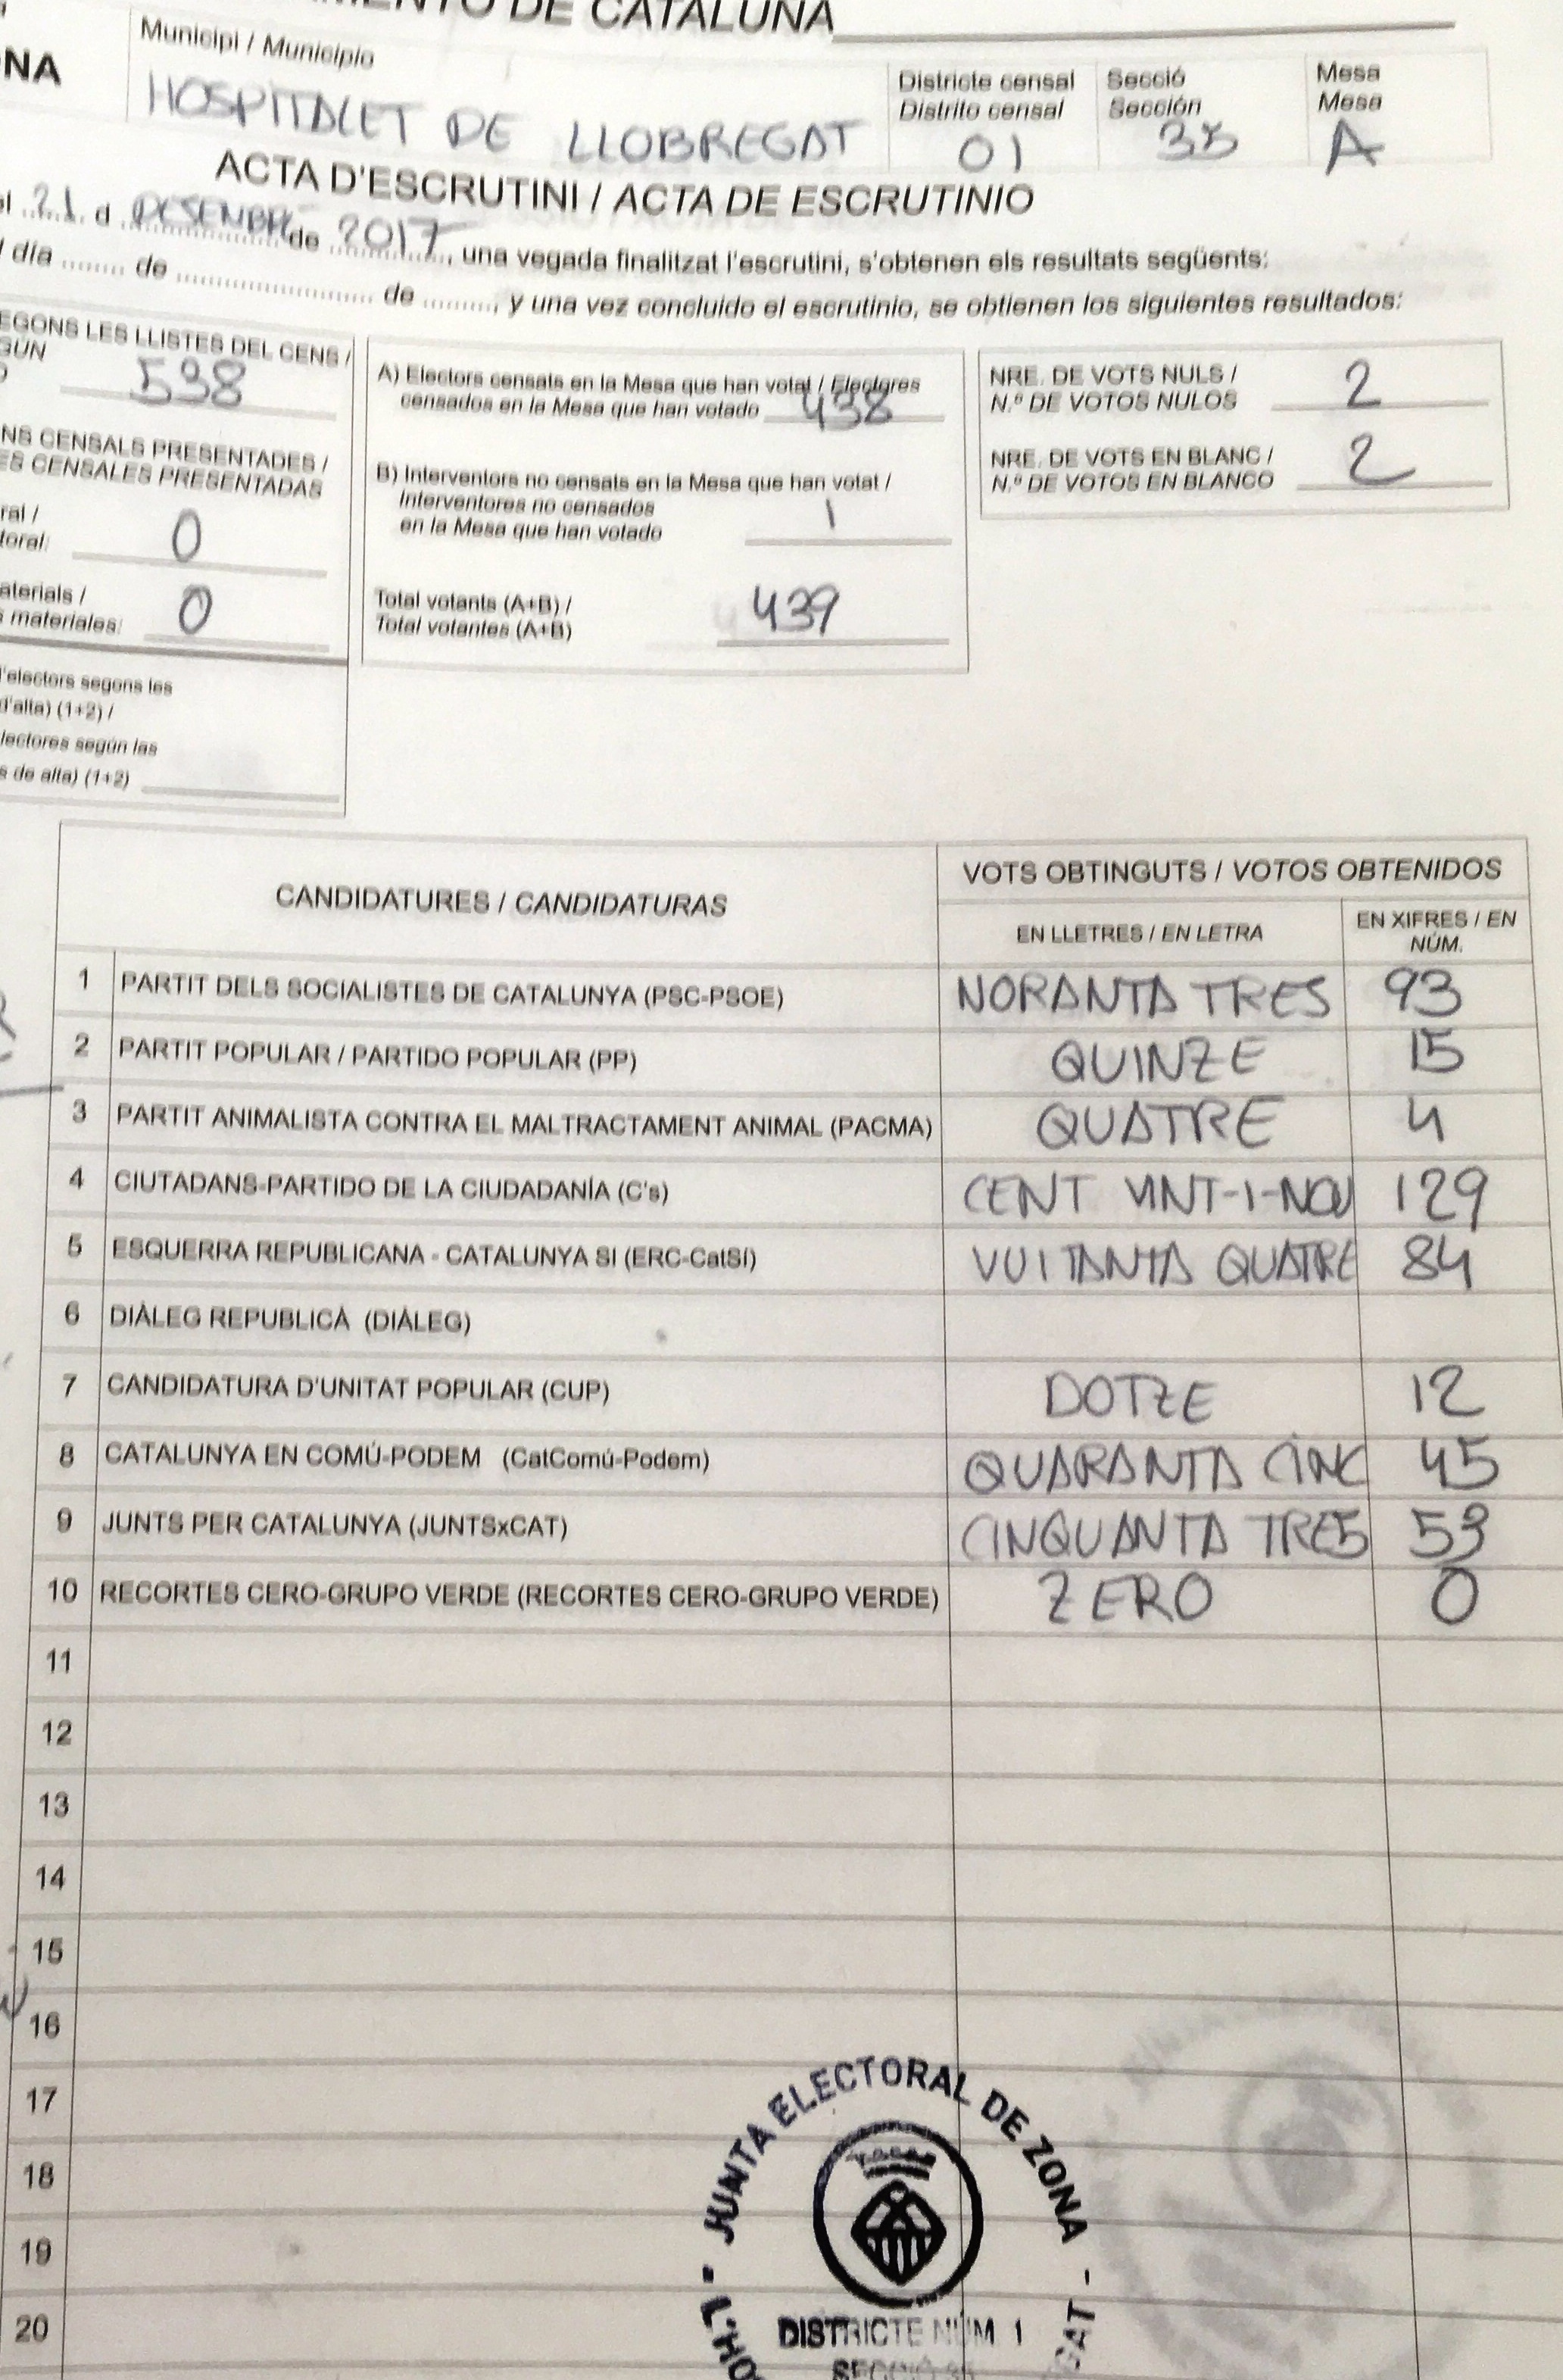 DE CATALUÑA
NA
Municipi / Municipio
HOSPITALET DE LLOBREGAT
Districte censal
Distrito censal
01
Secció
Sección
Mesa
Mesa
A
ACTA D'ESCRUTINI / ACTA DE ESCRUTINIO
21 d DESEMBRE de 2017, una vegada finalitzat l'escrutini, s'obtenen els resultats següents:
día ........ de ........................ de ........., y una vez concluido el escrutinio, se obtienen los siguientes resultados:
EGONS LES LLISTES DEL CENS /
GÚN
538
NS CENSALS PRESENTADES /
ES CENSALES PRESENTADAS
ral /
toral: 0
aterials /
s materiales: 0
'electors segons les
d'alta) (1+2) /
lectores según las
s de alta) (1+2)
A) Electors censats en la Mesa que han votat / Electores
censados en la Mesa que han votado 438
B) Interventors no censats en la Mesa que han votat /
Interventores no censados
en la Mesa que han votado 1
Total votants (A+B) /
Total votantes (A+B) 439
NRE. DE VOTS NULS /
N.º DE VOTOS NULOS 2
NRE. DE VOTS EN BLANC /
N.º DE VOTOS EN BLANCO 2
CANDIDATURES / CANDIDATURAS
VOTS OBTINGUTS / VOTOS OBTENIDOS
EN LLETRES / EN LETRA
EN XIFRES / EN
NÚM.
1 PARTIT DELS SOCIALISTES DE CATALUNYA (PSC-PSOE) NORANTA TRES 93
2 PARTIT POPULAR / PARTIDO POPULAR (PP) QUINZE 15
3 PARTIT ANIMALISTA CONTRA EL MALTRACTAMENT ANIMAL (PACMA) QUATRE 4
4 CIUTADANS-PARTIDO DE LA CIUDADANÍA (C's) CENT VINT-I-NOU 129
5 ESQUERRA REPUBLICANA - CATALUNYA SI (ERC-CatSí) VUITANTA QUATRE 84
6 DIÀLEG REPUBLICÀ (DIÀLEG)
7 CANDIDATURA D'UNITAT POPULAR (CUP) DOTZE 12
8 CATALUNYA EN COMÚ-PODEM (CatComú-Podem) QUARANTA CINC 45
9 JUNTS PER CATALUNYA (JUNTSxCAT) CINQUANTA TRES 53
10 RECORTES CERO-GRUPO VERDE (RECORTES CERO-GRUPO VERDE) ZERO 0
11
12
13
14
15
16
17
18
19
20
JUNTA ELECTORAL DE ZONA
- L'HO
GAT -
DISTRICTE NÚM. 1
SECCIÓ